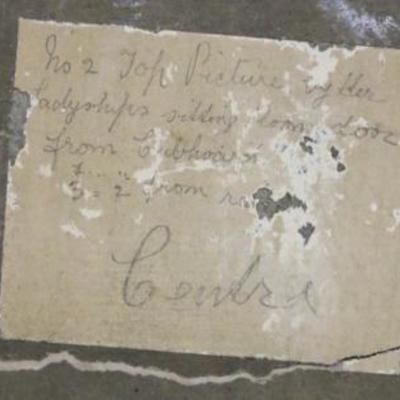 No 2 Top Picture by Her
Ladyships sitting room door
from Cubboard
3 = 2 from
Centre